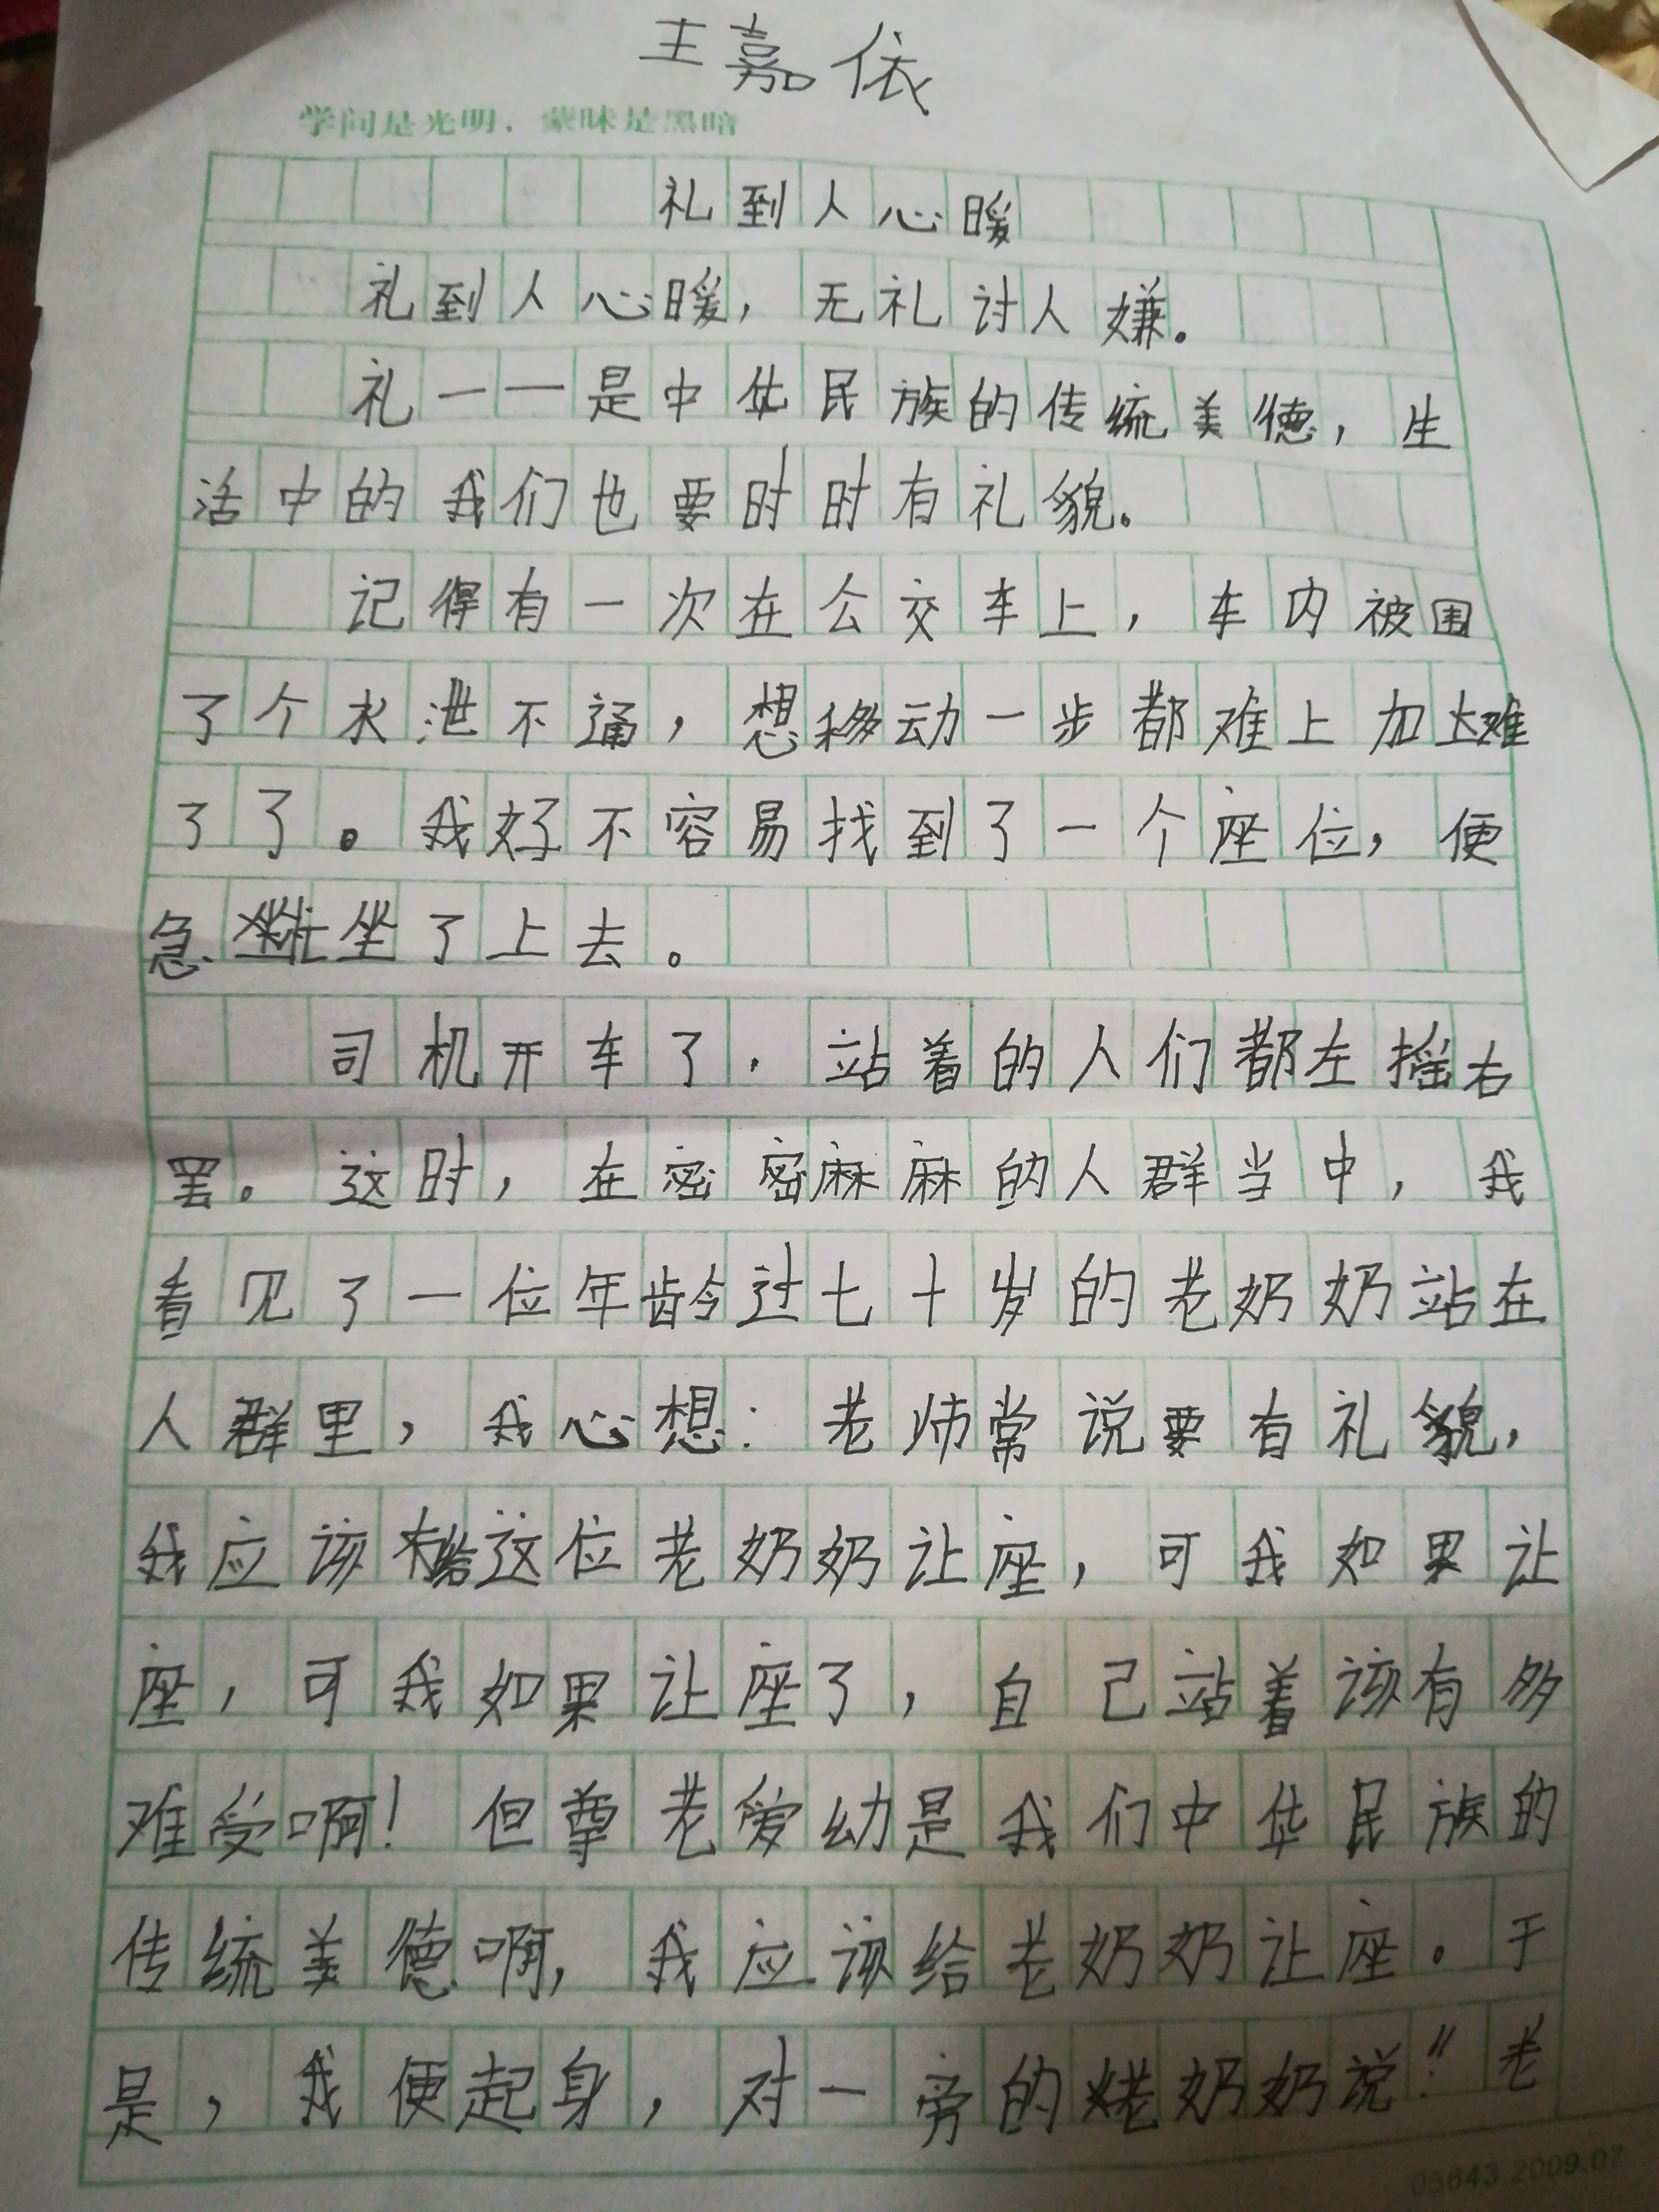 王嘉依
学问是光明，蒙昧是黑暗
礼到人心暖
礼到人心暖，无礼讨人嫌。
礼一一是中华民族的传统美德，生
活中的我们也要时时有礼貌。
记得有一次在公交车上，车内被围
了个水泄不通，想移动一步都难上加难
了了。我好不容易找到了一个座位，便
急忙坐了上去。
司机开车了，站着的人们都左摇右
罢。这时，在密密麻麻的人群当中，我
看见了一位年龄过七十岁的老奶奶站在
人群里，我心想：老师常说要有礼貌，
我应该给这位老奶奶让座，可我如果让
座，可我如果让座了，自己站着该有多
难受啊！但尊老爱幼是我们中华民族的
传统美德啊，我应该给老奶奶让座。于
是，我便起身，对一旁的老奶奶说："老
05643.2009.07